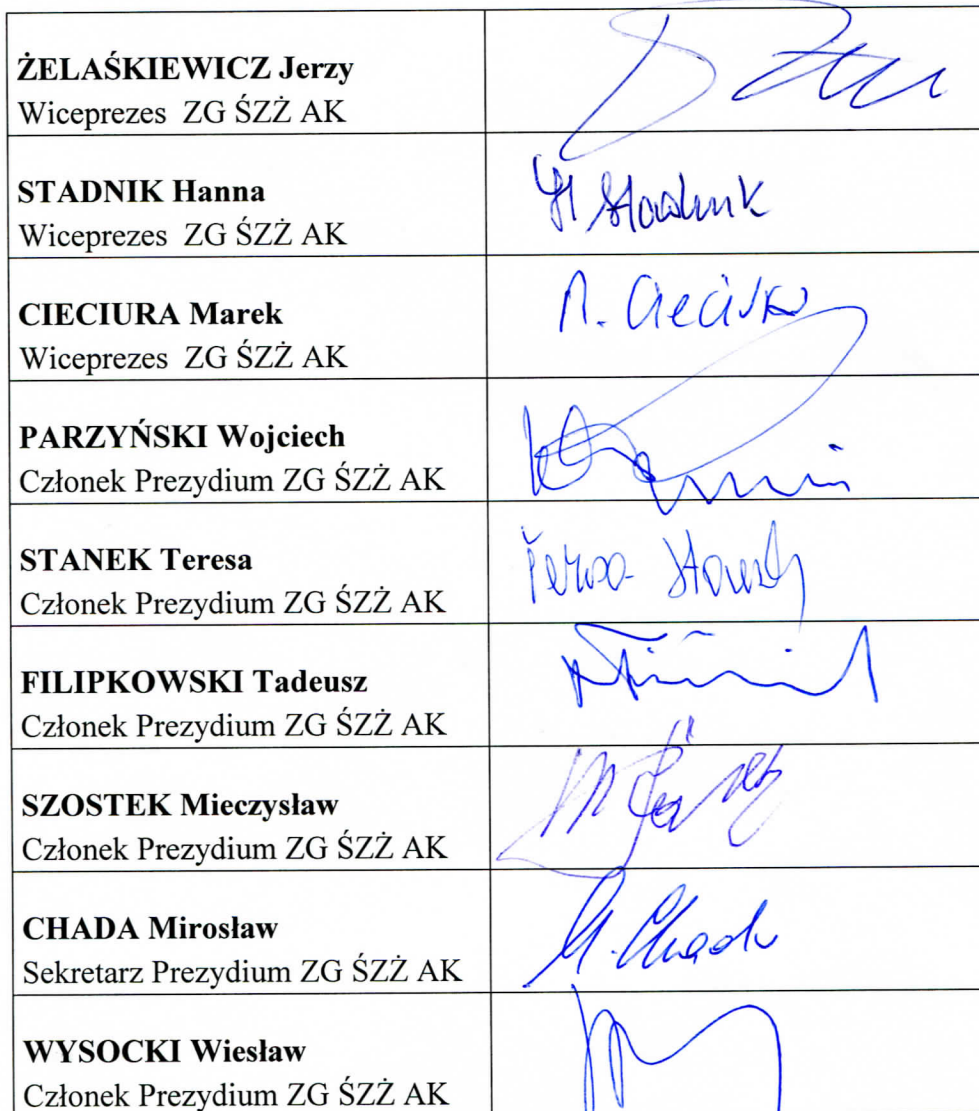 ŻELAŚKIEWICZ Jerzy
Wiceprezes ZG ŚZŻ AK
STADNIK Hanna
Wiceprezes ZG ŚZŻ AK
H Stadnik
CIECIURA Marek
Wiceprezes ZG ŚZŻ AK
M. Cieciura
PARZYŃSKI Wojciech
Członek Prezydium ZG ŚZŻ AK
STANEK Teresa
Członek Prezydium ZG ŚZŻ AK
Teresa Stanek
FILIPKOWSKI Tadeusz
Członek Prezydium ZG ŚZŻ AK
SZOSTEK Mieczysław
Członek Prezydium ZG ŚZŻ AK
CHADA Mirosław
Sekretarz Prezydium ZG ŚZŻ AK
M. Chada
WYSOCKI Wiesław
Członek Prezydium ZG ŚZŻ AK